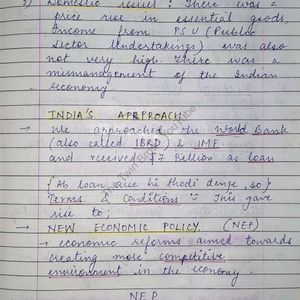 2) Domestic result : There was a
price rise in essential goods.
Income from PSU (Public
Sector Undertakings) was also
not very high. There was a
mismanagement of the Indian
economy.
INDIA'S APPROACH
→ We approached the World Bank
(also called IBRD) & IMF
and received $7 Billion as loan
{Ab loan aise hi thodi denge, so}
Terms & Conditions :- This gave
rise to;
→ NEW ECONOMIC POLICY. (NEP)
→ economic reforms aimed towards
creating more competitive
environment in the economy.
NEP